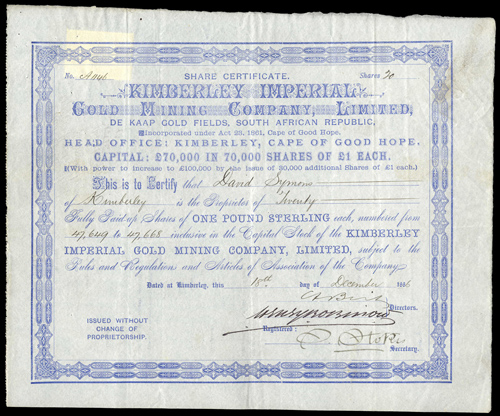 SHARE CERTIFICATE.
No. Shares 20
KIMBERLEY IMPERIAL
GOLD MINING COMPANY, LIMITED,
DE KAAP GOLD FIELDS, SOUTH AFRICAN REPUBLIC,
Incorporated under Act 23, 1861, Cape of Good Hope.
HEAD OFFICE: KIMBERLEY, CAPE OF GOOD HOPE.
CAPITAL: £70,000 IN 70,000 SHARES OF £1 EACH.
(With power to increase to £100,000 by an issue of 30,000 additional Shares of £1 each.)
This is to Certify that David Symons
of Kimberley is the Proprietor of Twenty
Fully Paid up Shares of ONE POUND STERLING each, numbered from
47,649 to 47,668 inclusive in the Capital Stock of the KIMBERLEY
IMPERIAL GOLD MINING COMPANY, LIMITED, subject to the
Rules and Regulations and Articles of Association of the Company.
Dated at Kimberley, this day of December 1886
Directors.
Registered:
Secretary.
ISSUED WITHOUT
CHANGE OF
PROPRIETORSHIP.